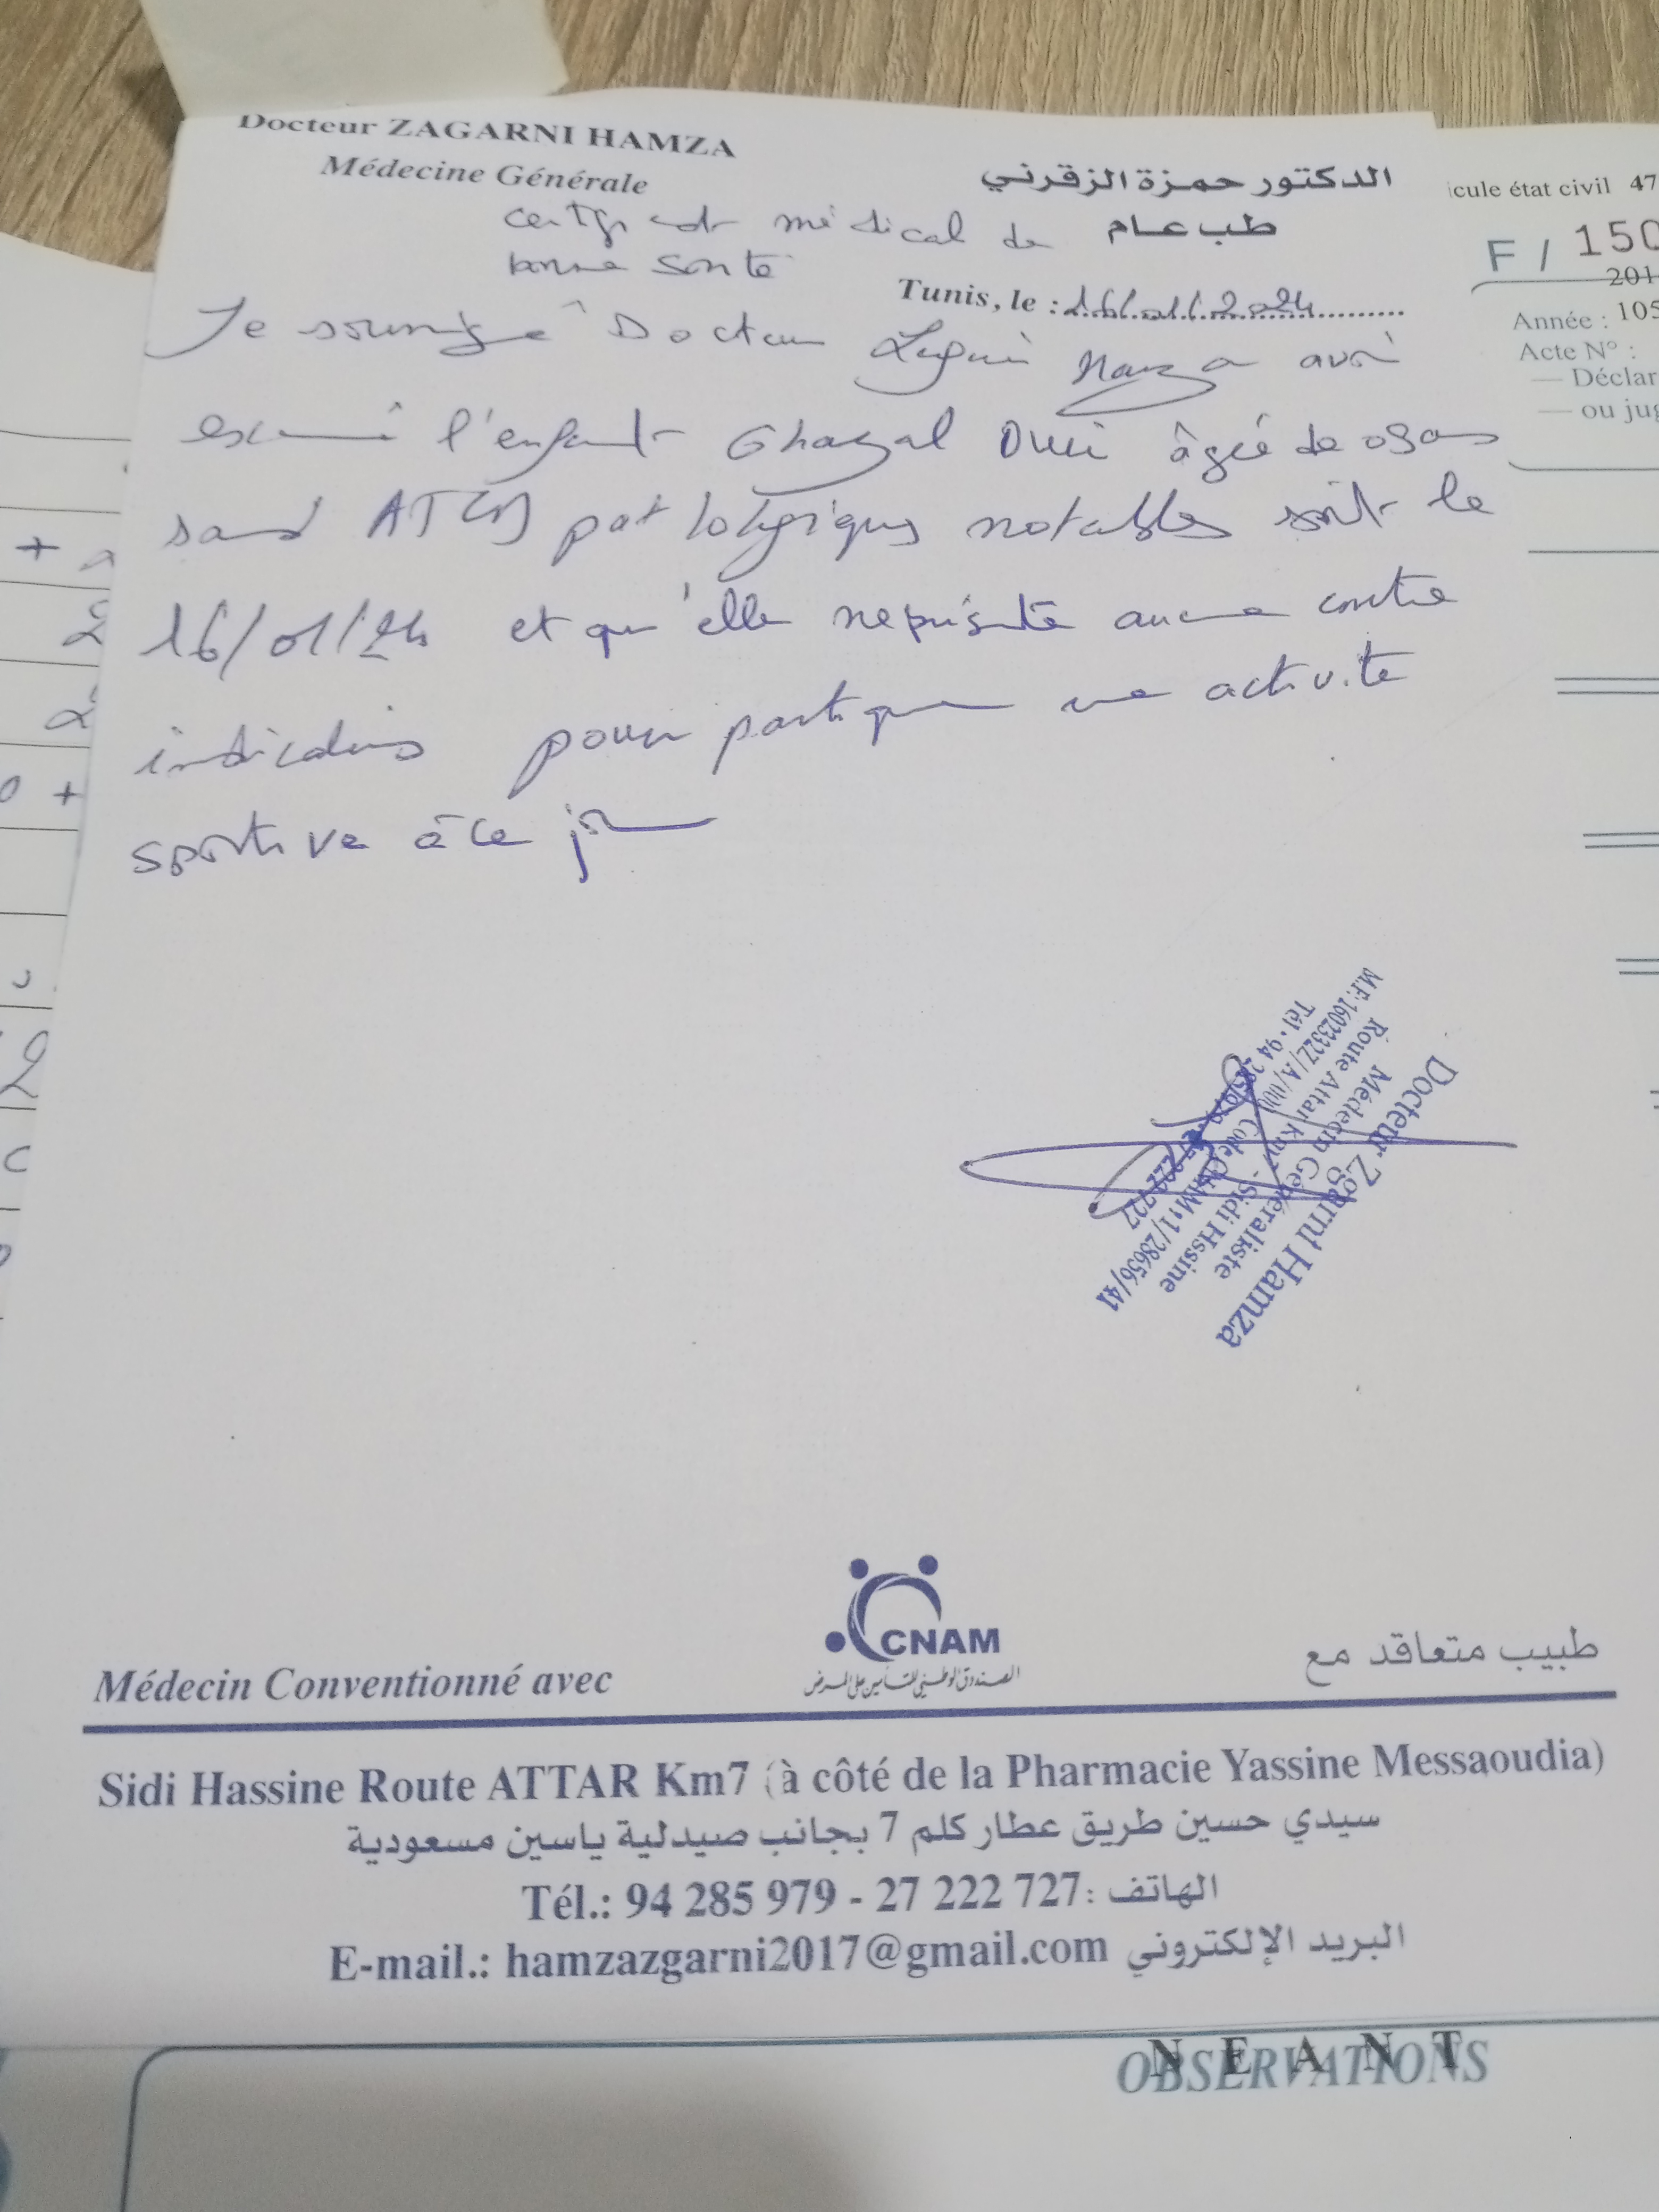 Docteur ZAGARNI HAMZA
Médecine Générale
الدكتور حمزة الزقرني
طب عام
médical de
bonne santé
Tunis, le : 16/01/2024
Je soussigné Docteur Hamza avoir
examiné l'enfant Ghazal âgée de
sans ATCD pathologiques notables le
16/01/24 et qu'elle ne présente aucune contre
indications pour pratiquer une activité
sportive à ce jour
Docteur Zgarni Hamza
Médecin Généraliste
Route Attar Km7 - Sidi Hssine
Code CNAM: 1/28656/41
Médecin Conventionné avec
CNAM
الصندوق الوطني للتأمين على المرض
طبيب متعاقد مع
Sidi Hassine Route ATTAR Km7 (à côté de la Pharmacie Yassine Messaoudia)
سيدي حسين طريق عطار كلم 7 بجانب صيدلية ياسين مسعودية
Tél.: 94 285 979 - 27 222 727 :الهاتف
E-mail.: hamzazgarni2017@gmail.com البريد الإلكتروني
icule état civil 47
F / 150
201
Année : 105
Acte N° :
— Déclar
— ou jug
NEANT
OBSERVATIONS